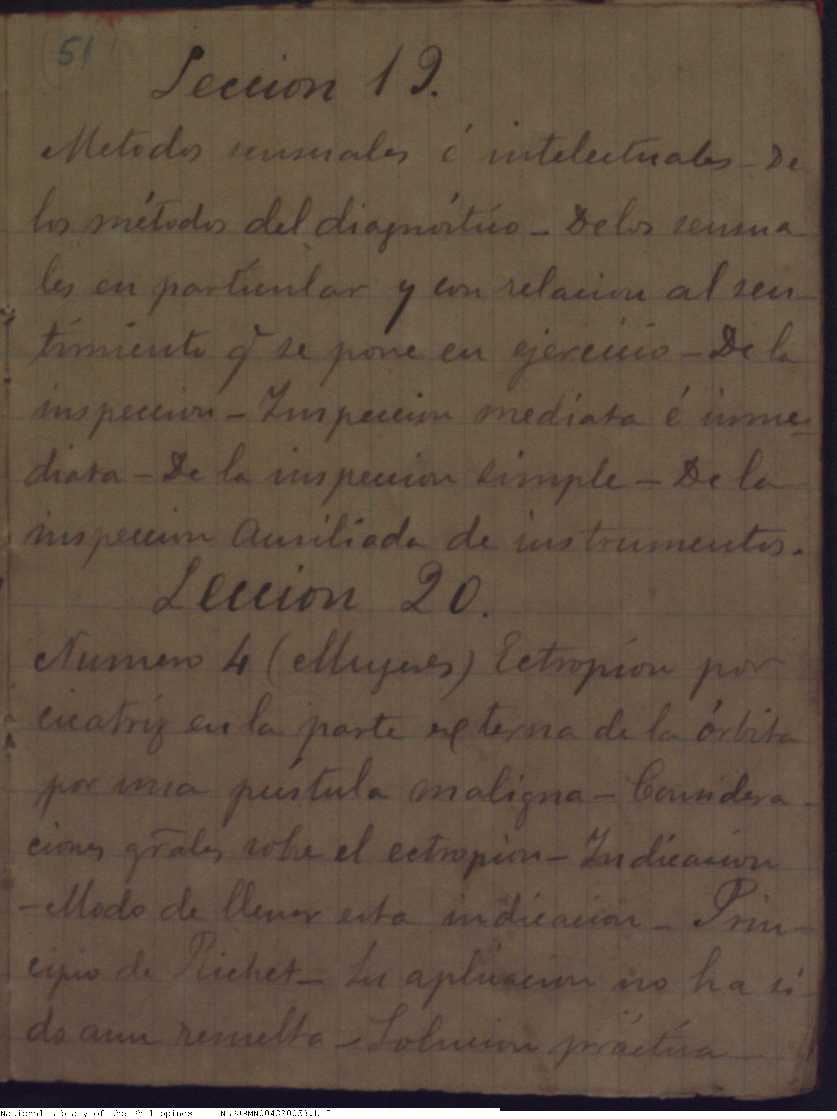 51
Leccion 19.
Metodos sensuales é intelectuales - De
los métodos del diagnóstico - De los sensua
les en particular y con relacion al sen-
timiento q̃ se pone en ejercicio - De la
inspeccion - Inspeccion mediata é inme-
diata - De la inspeccion simple - De la
inspeccion Ausiliada de instrumentos.
Leccion 20.
Numero 4 (Mujeres) Ectropion por
cicatriz en la parte externa de la órbita
por una pústula maligna - Considera-
ciones grãles sobre el ectropion - Indicacion
- Modo de llenar esta indicacion - Prin-
cipio de Richet - Su aplicacion no ha si
do aun resuelta - Solucion práctica -
National Library of the Philippines